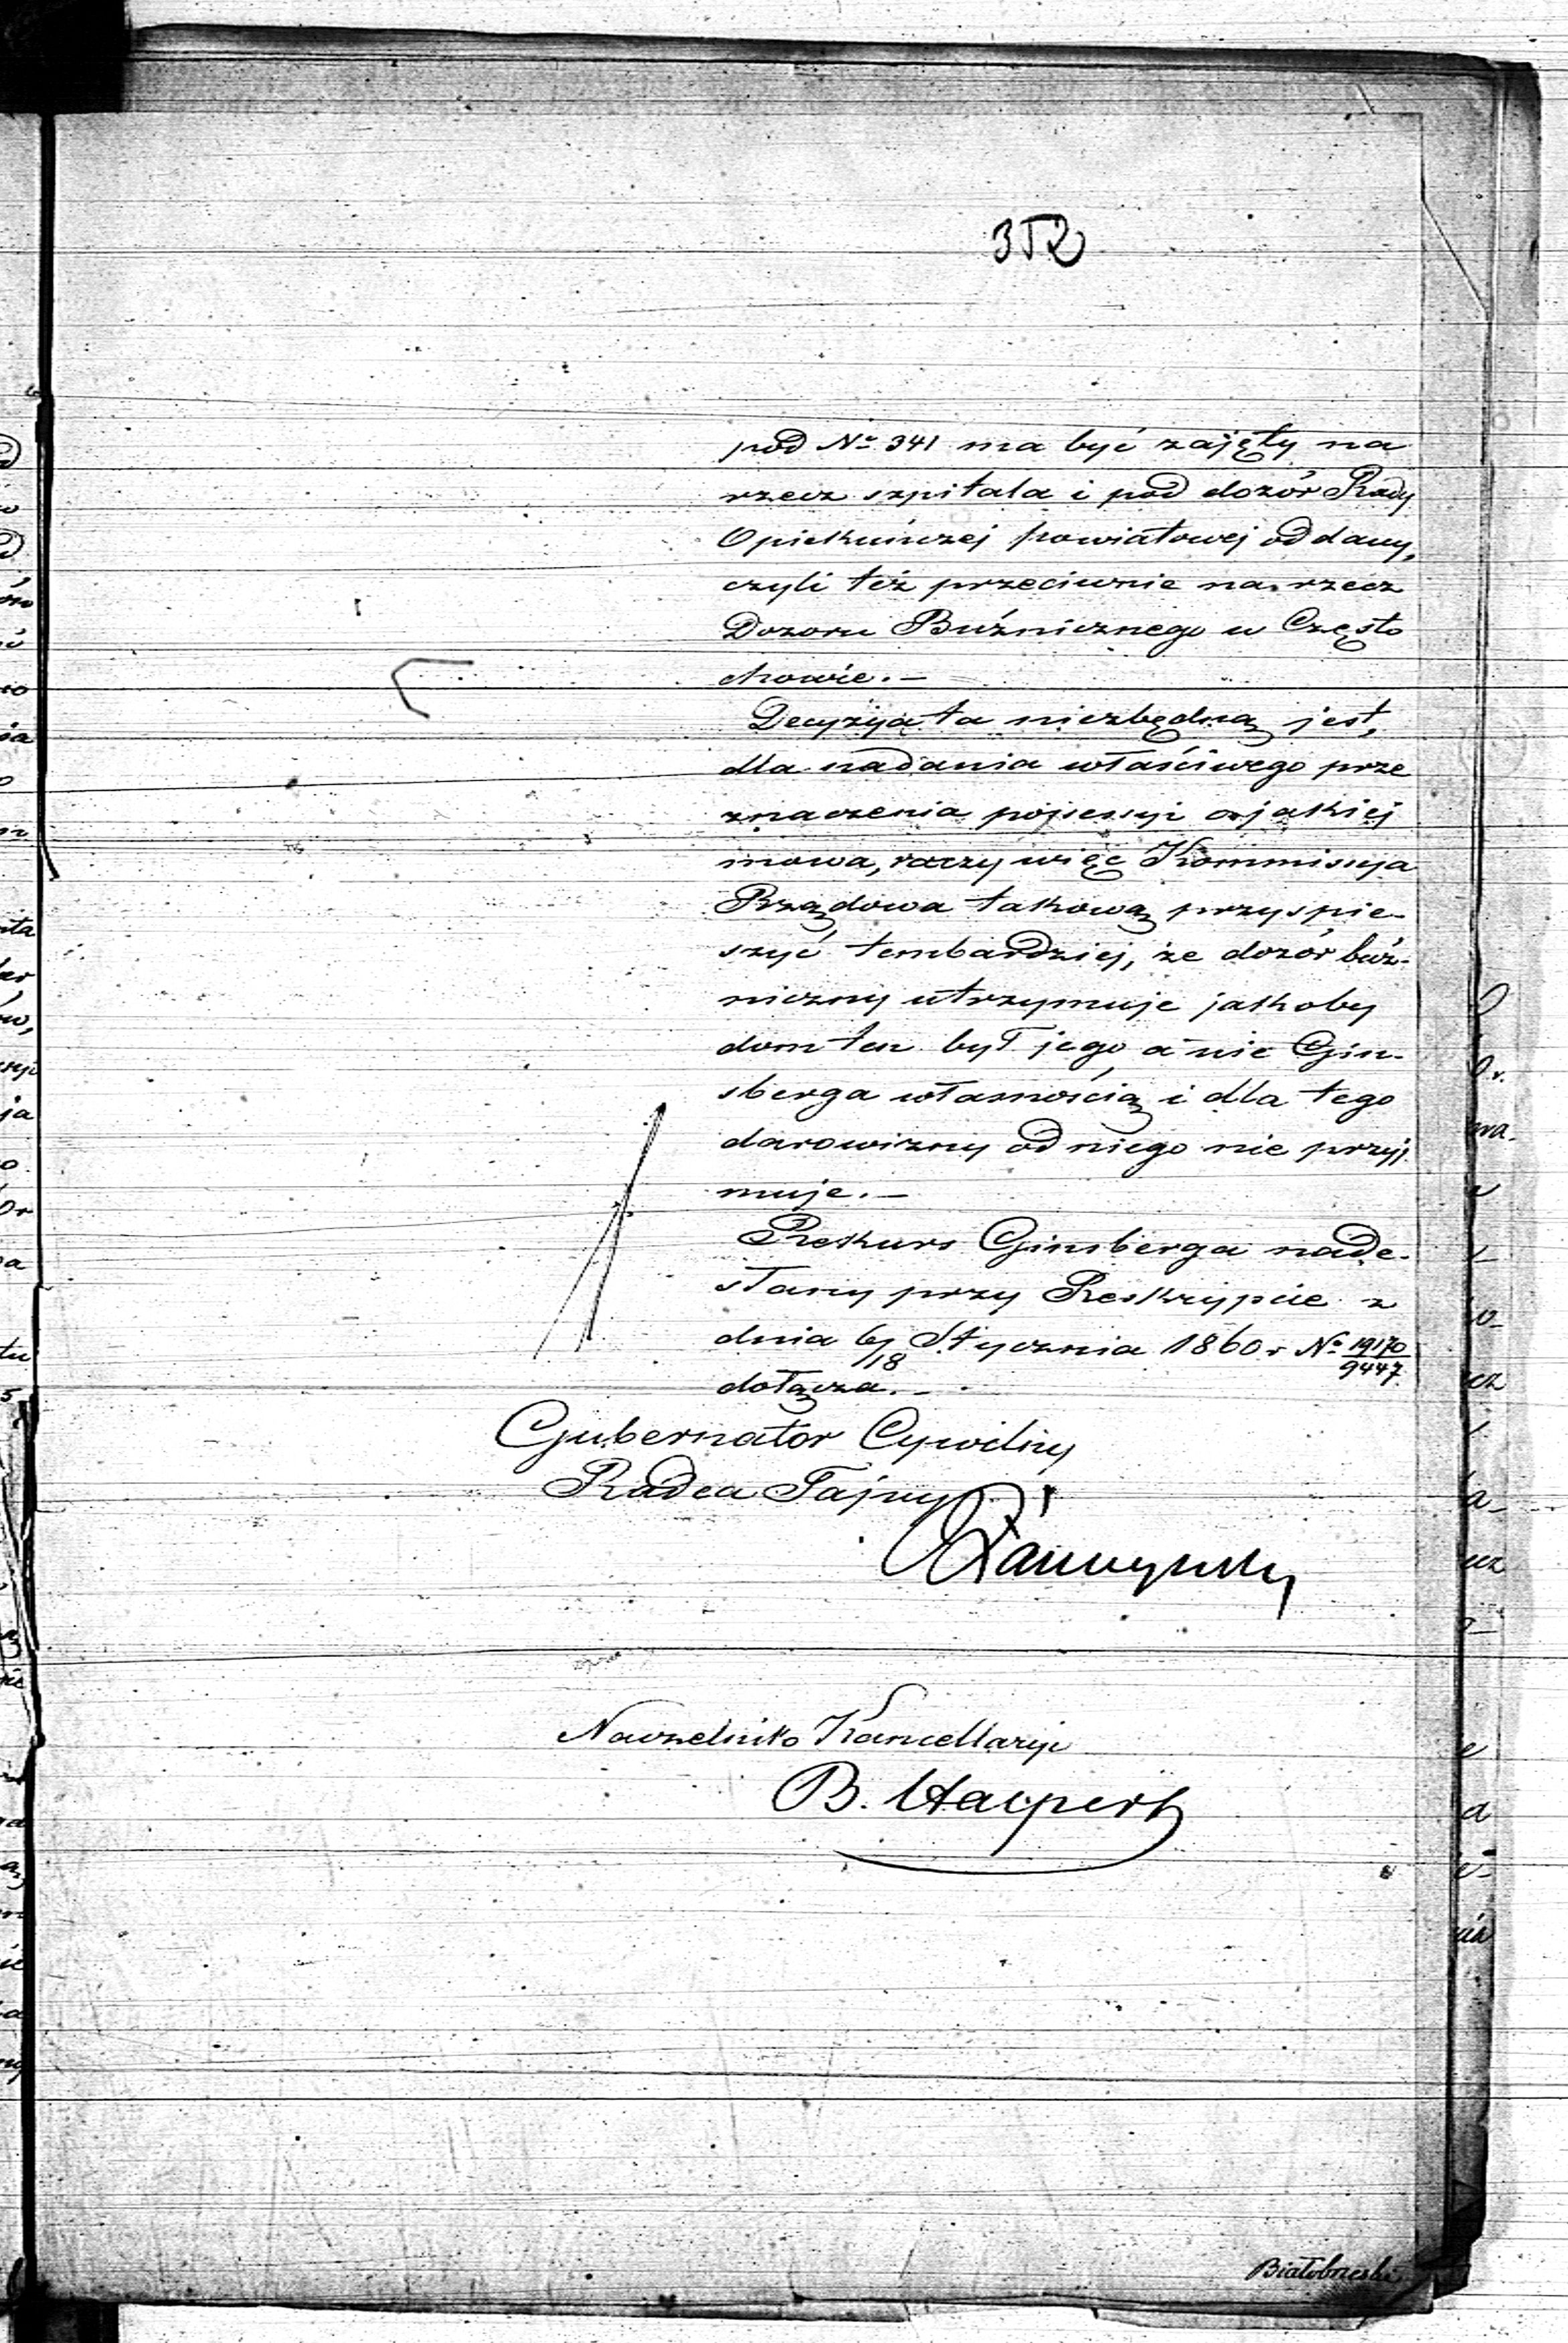 352
pod № 341 ma być zajęty na
rzecz szpitala i pod dozór Rady
Opiekuńczej powiatowej oddany,
czyli też przeciwnie na rzecz
Dozoru Bużnicznego w Często
chowie. —
Decyzyja ta niezbędną jest,
dla nadania właściwego prze
znaczenia possessyi o jakiej
mowa, raczy więc Kommissyja
Rządowa takową przyspie-
szyć tembardziej, że dozór buż-
niczny utrzymuje jakoby
dom ten był jego a nie Gin-
sberga własnością i dla tego
darowizny od niego nie przyj
muje. —
Rekurs Ginsberga nade-
słany przy Reskrypcie z
dnia 6/18 Stycznia 1860 r № 19170/9447
dołącza. —
Gubernator Cywilny
Radca Tajny
Naczelnik Kancellaryi
B.
Białobrzeski